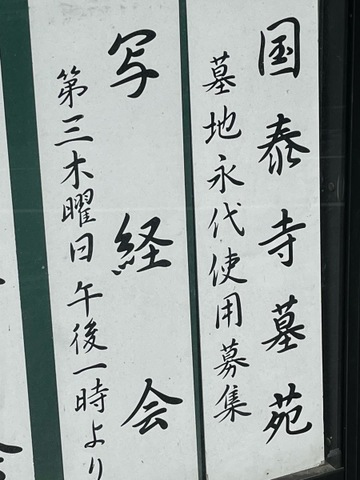 国泰寺墓苑
墓地永代使用募集
写経会
第三木曜日午後一時より
会